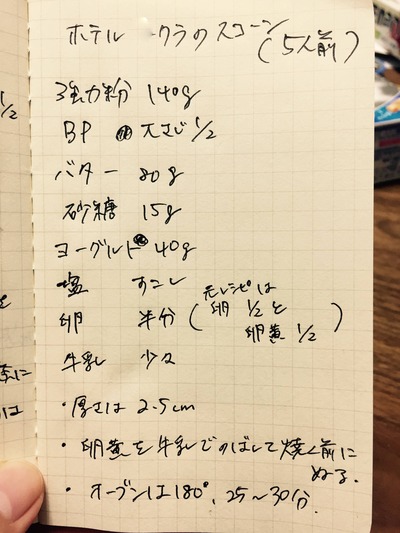 ホテル クラのスコーン
(5人前)
強力粉 140g
BP 大さじ1/2
バター 80g
砂糖 15g
ヨーグルト 40g
塩 すこし
卵 半分 (元レシピは
卵 1/2と
卵黄 1/2)
牛乳 少々
・厚さは 2.5cm
・卵黄を牛乳でのばして焼く前に
ぬる。
・オーブンは180°、25〜30分。
1/2
に
は